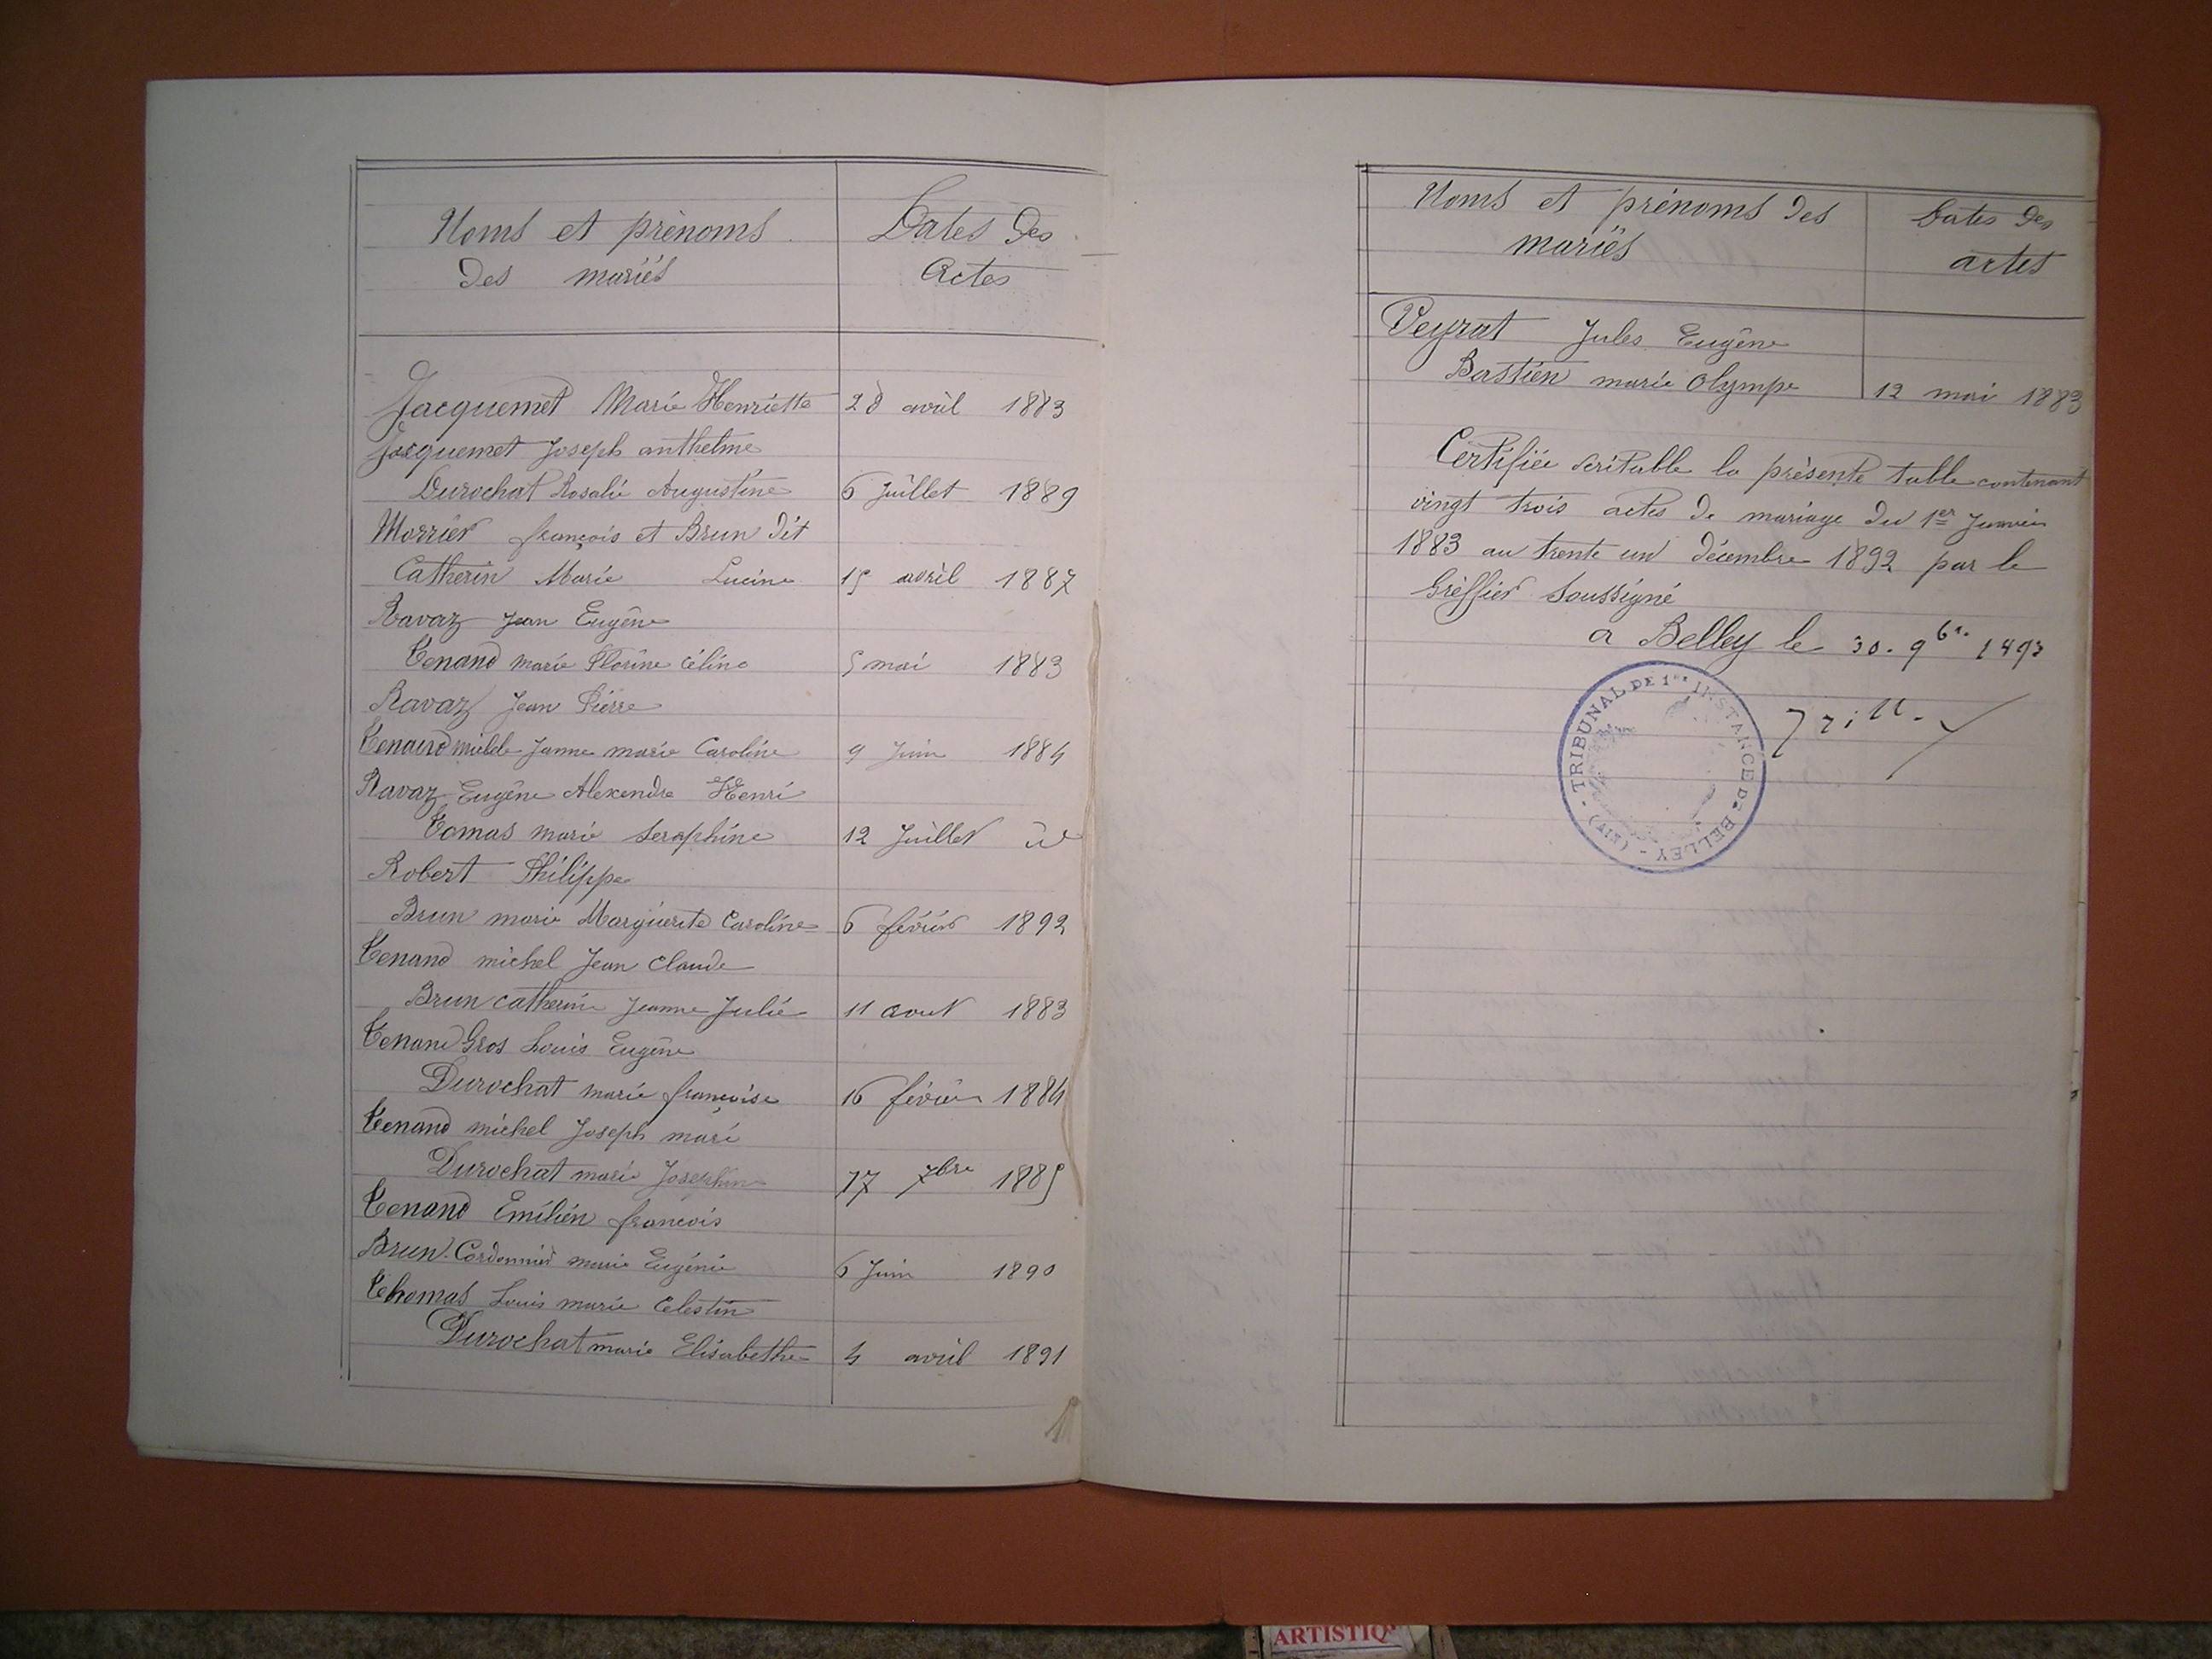 Noms et prénoms
Des mariés
Dates Des
Actes
Jacquemet Marie Henriette 28 avril 1883
Jacquemet Joseph anthelme
Durochat Rosalie Augustine 6 Juillet 1889
Morrier françois et Brun Dit
Catherin Marie Lucine 15 avril 1887
Ravaz Jean Eugène
Tenand marie Florine Céline 5 mai 1883
Ravaz Jean Pierre
Tenand Janne marie Caroline 9 Juin 1884
Ravaz Eugène Alexendre Henri
Tomas marie Seraphine 12 Juillet id
Robert Philippe
Brun marie Marguerite Caroline 6 février 1892
Tenand michel Jean Claude
Brun catherin Jeanne Julie 11 aout 1883
Tenand Gros Louis Eugène
Durochat marie françoise 16 février 1884
Tenand michel Joseph mari
Durochat marie Josephine 17 7bre 1885
Tenand Emilién françois
Brun-Cordonnier marie Eugénie 6 Juin 1890
Thomas Louis marie Celestin
Durochat marie Elisabethe 4 avril 1891
Noms et prénoms des
mariés
Dates Des
actes
Veyrat Jules Eugène
Bastien marie Olympe 12 mai 1883
Certifiée veritable la présente table contenant
vingt trois actes de mariage du 1er Janvier
1883 au trente un décembre 1892 par le
Greffier Soussigné
a Belley le 30. 9br. 1893
TRIBUNAL DE 1re INSTANCE DE BELLEY - (AIN) -
ARTISTIQ